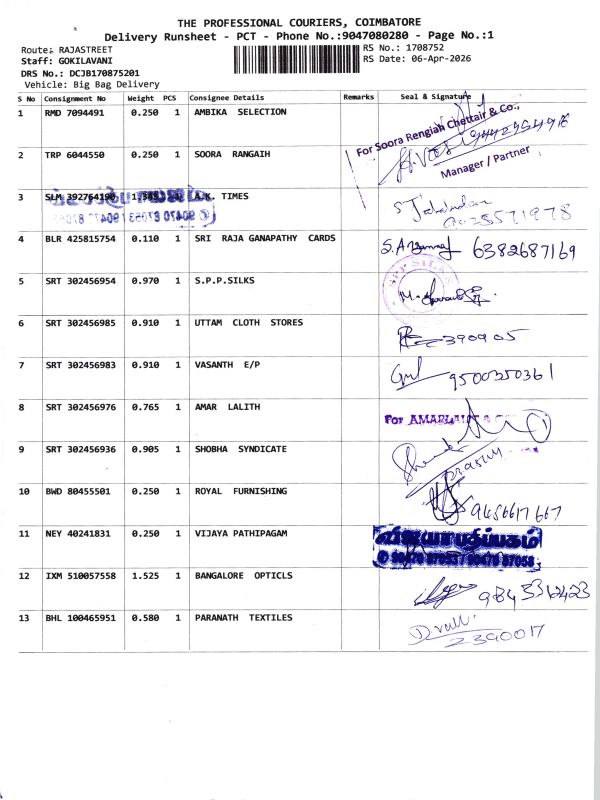 THE PROFESSIONAL COURIERS, COIMBATORE
Delivery Runsheet - PCT - Phone No.:9047080280 - Page No.:1
Route: RAJASTREET
RS No.: 1708752
Staff: GOKILAVANI
RS Date: 06-Apr-2026
DRS No.: DCJB170875201
Vehicle: Big Bag Delivery
S No Consignment No Weight PCS Consignee Details Remarks Seal & Signature
1 RMD 7094491 0.250 1 AMBIKA SELECTION
For Soora Rengiah Chettair & Co.,
2 TRP 6044550 0.250 1 SOORA RANGAIH
Manager / Partner
3 SLM 392764190 A.K. TIMES
4 BLR 425815754 0.110 1 SRI RAJA GANAPATHY CARDS 6382687169
5 SRT 302456954 0.970 1 S.P.P.SILKS
S.P.P. SILKS
6 SRT 302456985 0.910 1 UTTAM CLOTH STORES 390905
7 SRT 302456983 0.910 1 VASANTH E/P 9500350361
8 SRT 302456976 0.765 1 AMAR LALITH
For
9 SRT 302456936 0.905 1 SHOBHA SYNDICATE
10 BWD 80455501 0.250 1 ROYAL FURNISHING
11 NEY 40241831 0.250 1 VIJAYA PATHIPAGAM
விஜயா பதிப்பகம்
12 IXM 510057558 1.525 1 BANGALORE OPTICLS
13 BHL 100465951 0.580 1 PARANATH TEXTILES
2390017